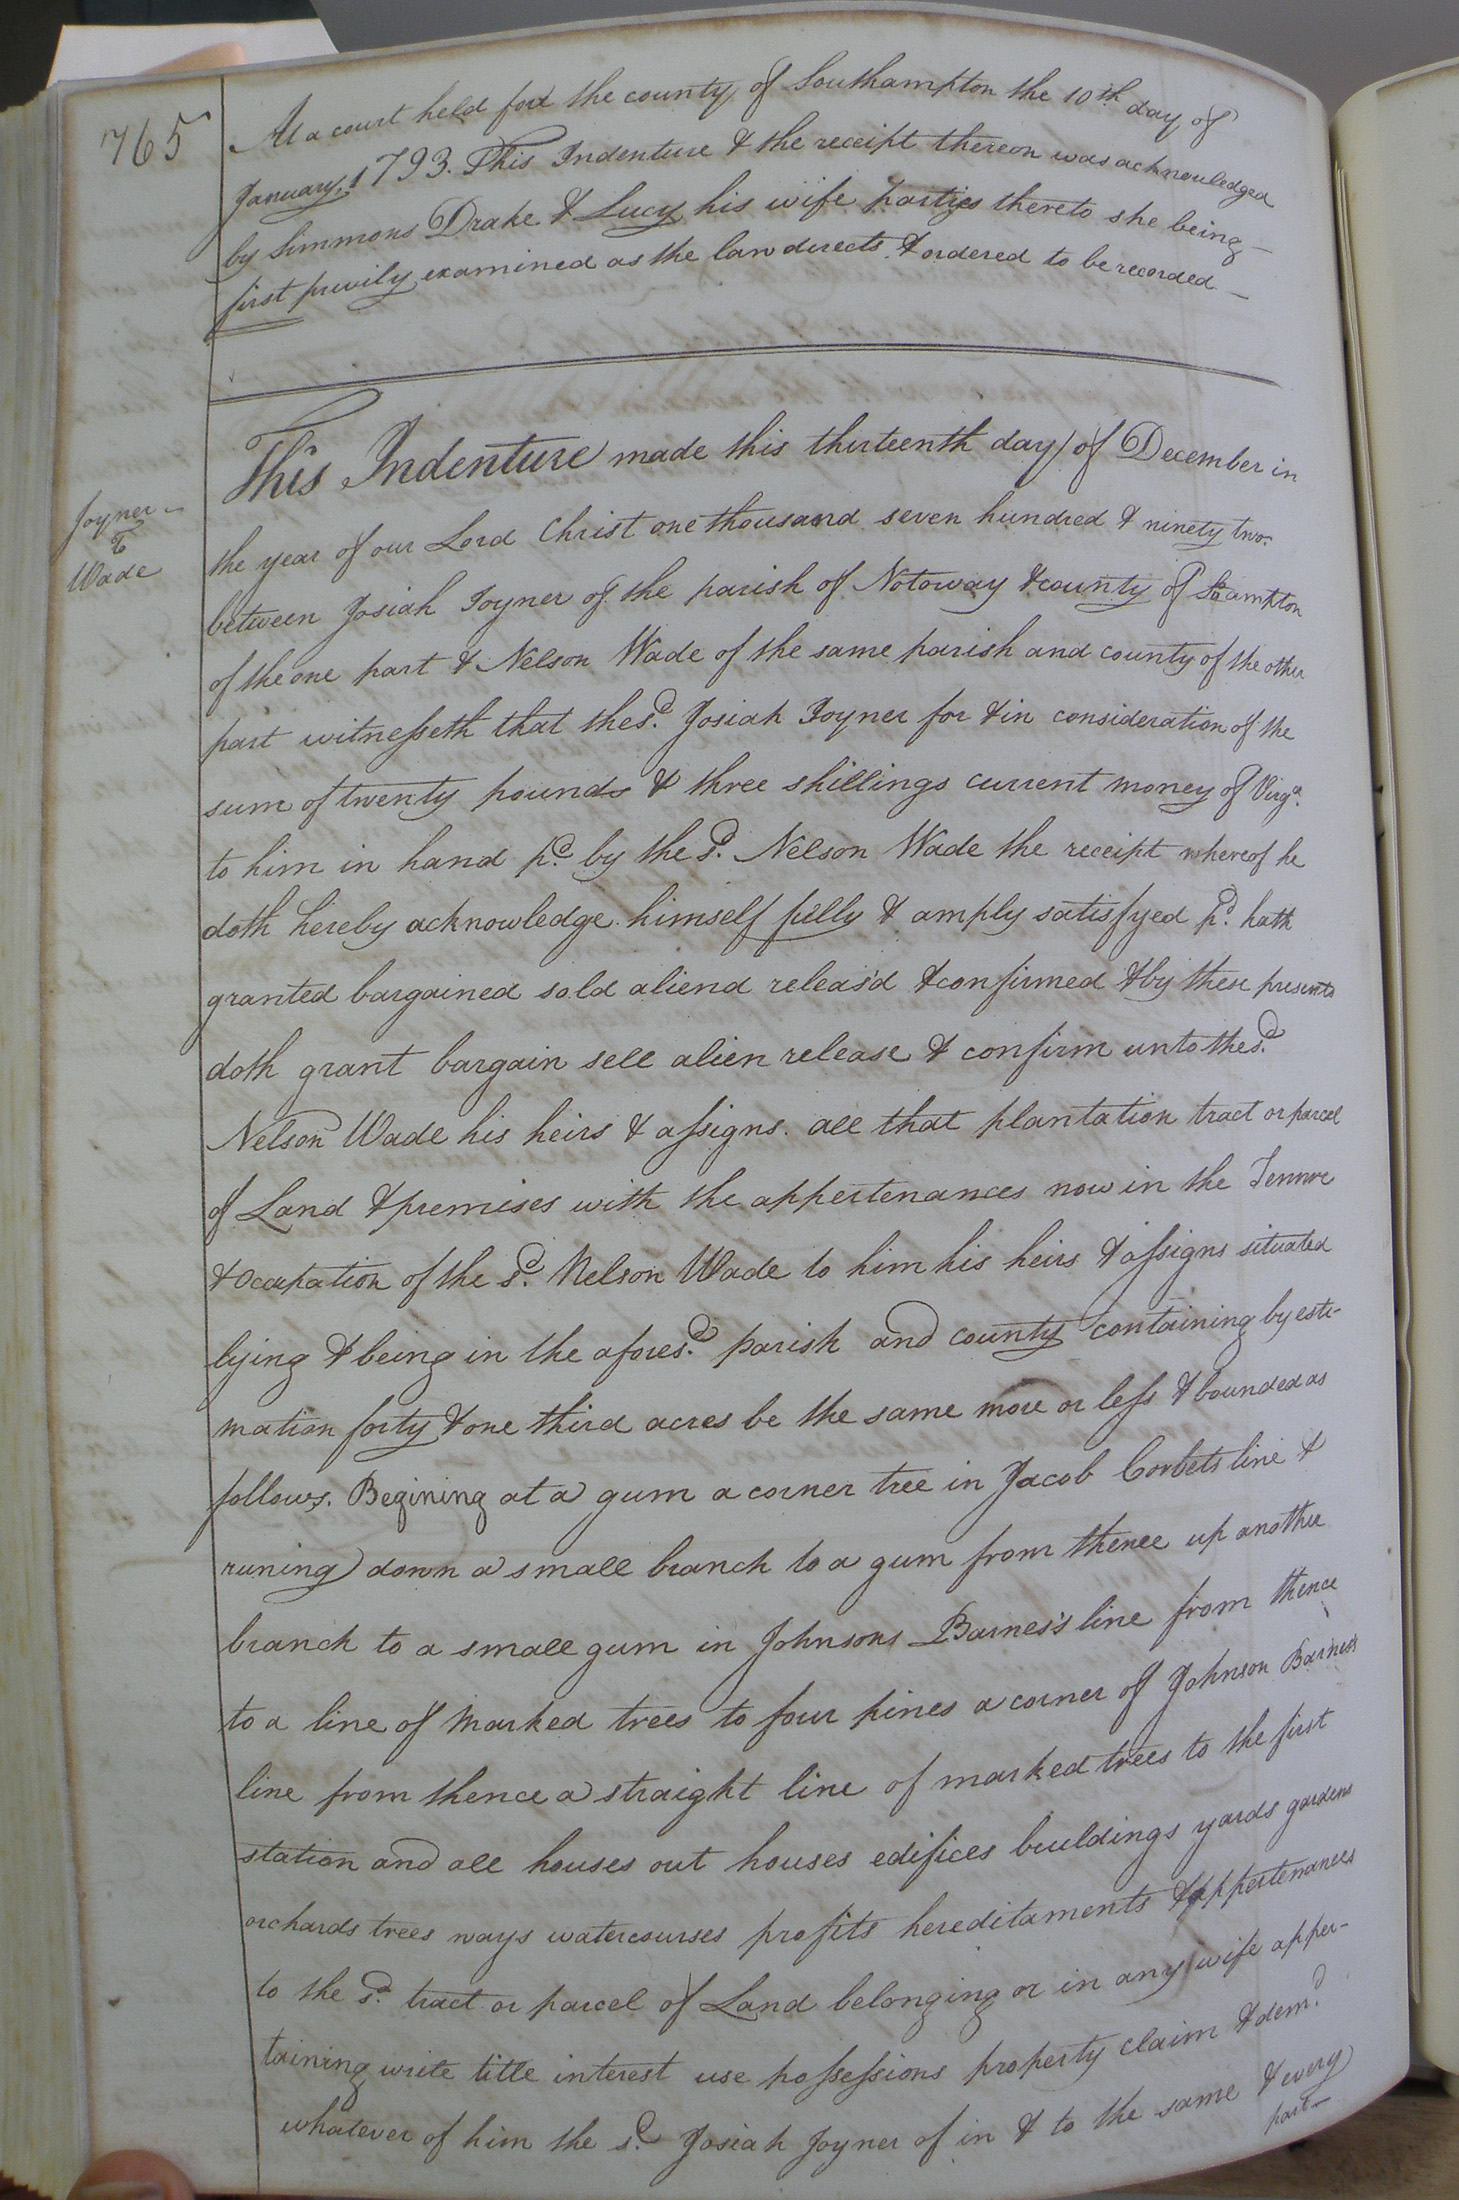 765
At a court held for the county of Southampton the 10th day of
January 1793. This Indenture & the receipt thereon was acknowledged
by Simmons Drake & Lucy his wife parties thereto she being
first privily examined as the law directs & ordered to be recorded
Joyner
To
Wade
This Indenture made this thirteenth day of December in
the year of our Lord Christ one thousand seven hundred & ninety two
between Josiah Joyner of the parish of Notoway & county of Sampton
of the one part & Nelson Wade of the same parish and county of the other
part witnesseth that the sd. Josiah Joyner for & in consideration of the
sum of twenty pounds & three shillings current money of Virga.
to him in hand pd. by the sd. Nelson Wade the receipt whereof he
doth hereby acknowledge himself fully & amply satisfyed pd. hath
granted bargained sold aliend releas'd & confirmed & by these presents
doth grant bargain sell alien release & confirm unto the sd.
Nelson Wade his heirs & assigns. all that plantation tract or parcel
of Land & premises with the appertenances now in the Tennure
& Occupation of the sd. Nelson Wade to him his heirs & assigns situated
lying & being in the aforesd. parish and county containing by esti-
mation forty & one third acres be the same more or less & bounded as
follows. Begining at a gum a corner tree in Jacob Corbets line &
runing down a small branch to a gum from thence up another
branch to a small gum in Johnsons Barnes's line from thence
to a line of marked trees to four pines a corner of Johnson Barnes's
line from thence a straight line of marked trees to the first
station and all houses out houses edifices buildings yards gardens
orchards trees ways watercourses profits hereditaments & appertenances
to the sd. tract or parcel of Land belonging or in any wise apper-
taining write title interest use possessions property claim & demd.
whatever of him the sd. Josiah Joyner of in & to the same & every
part-